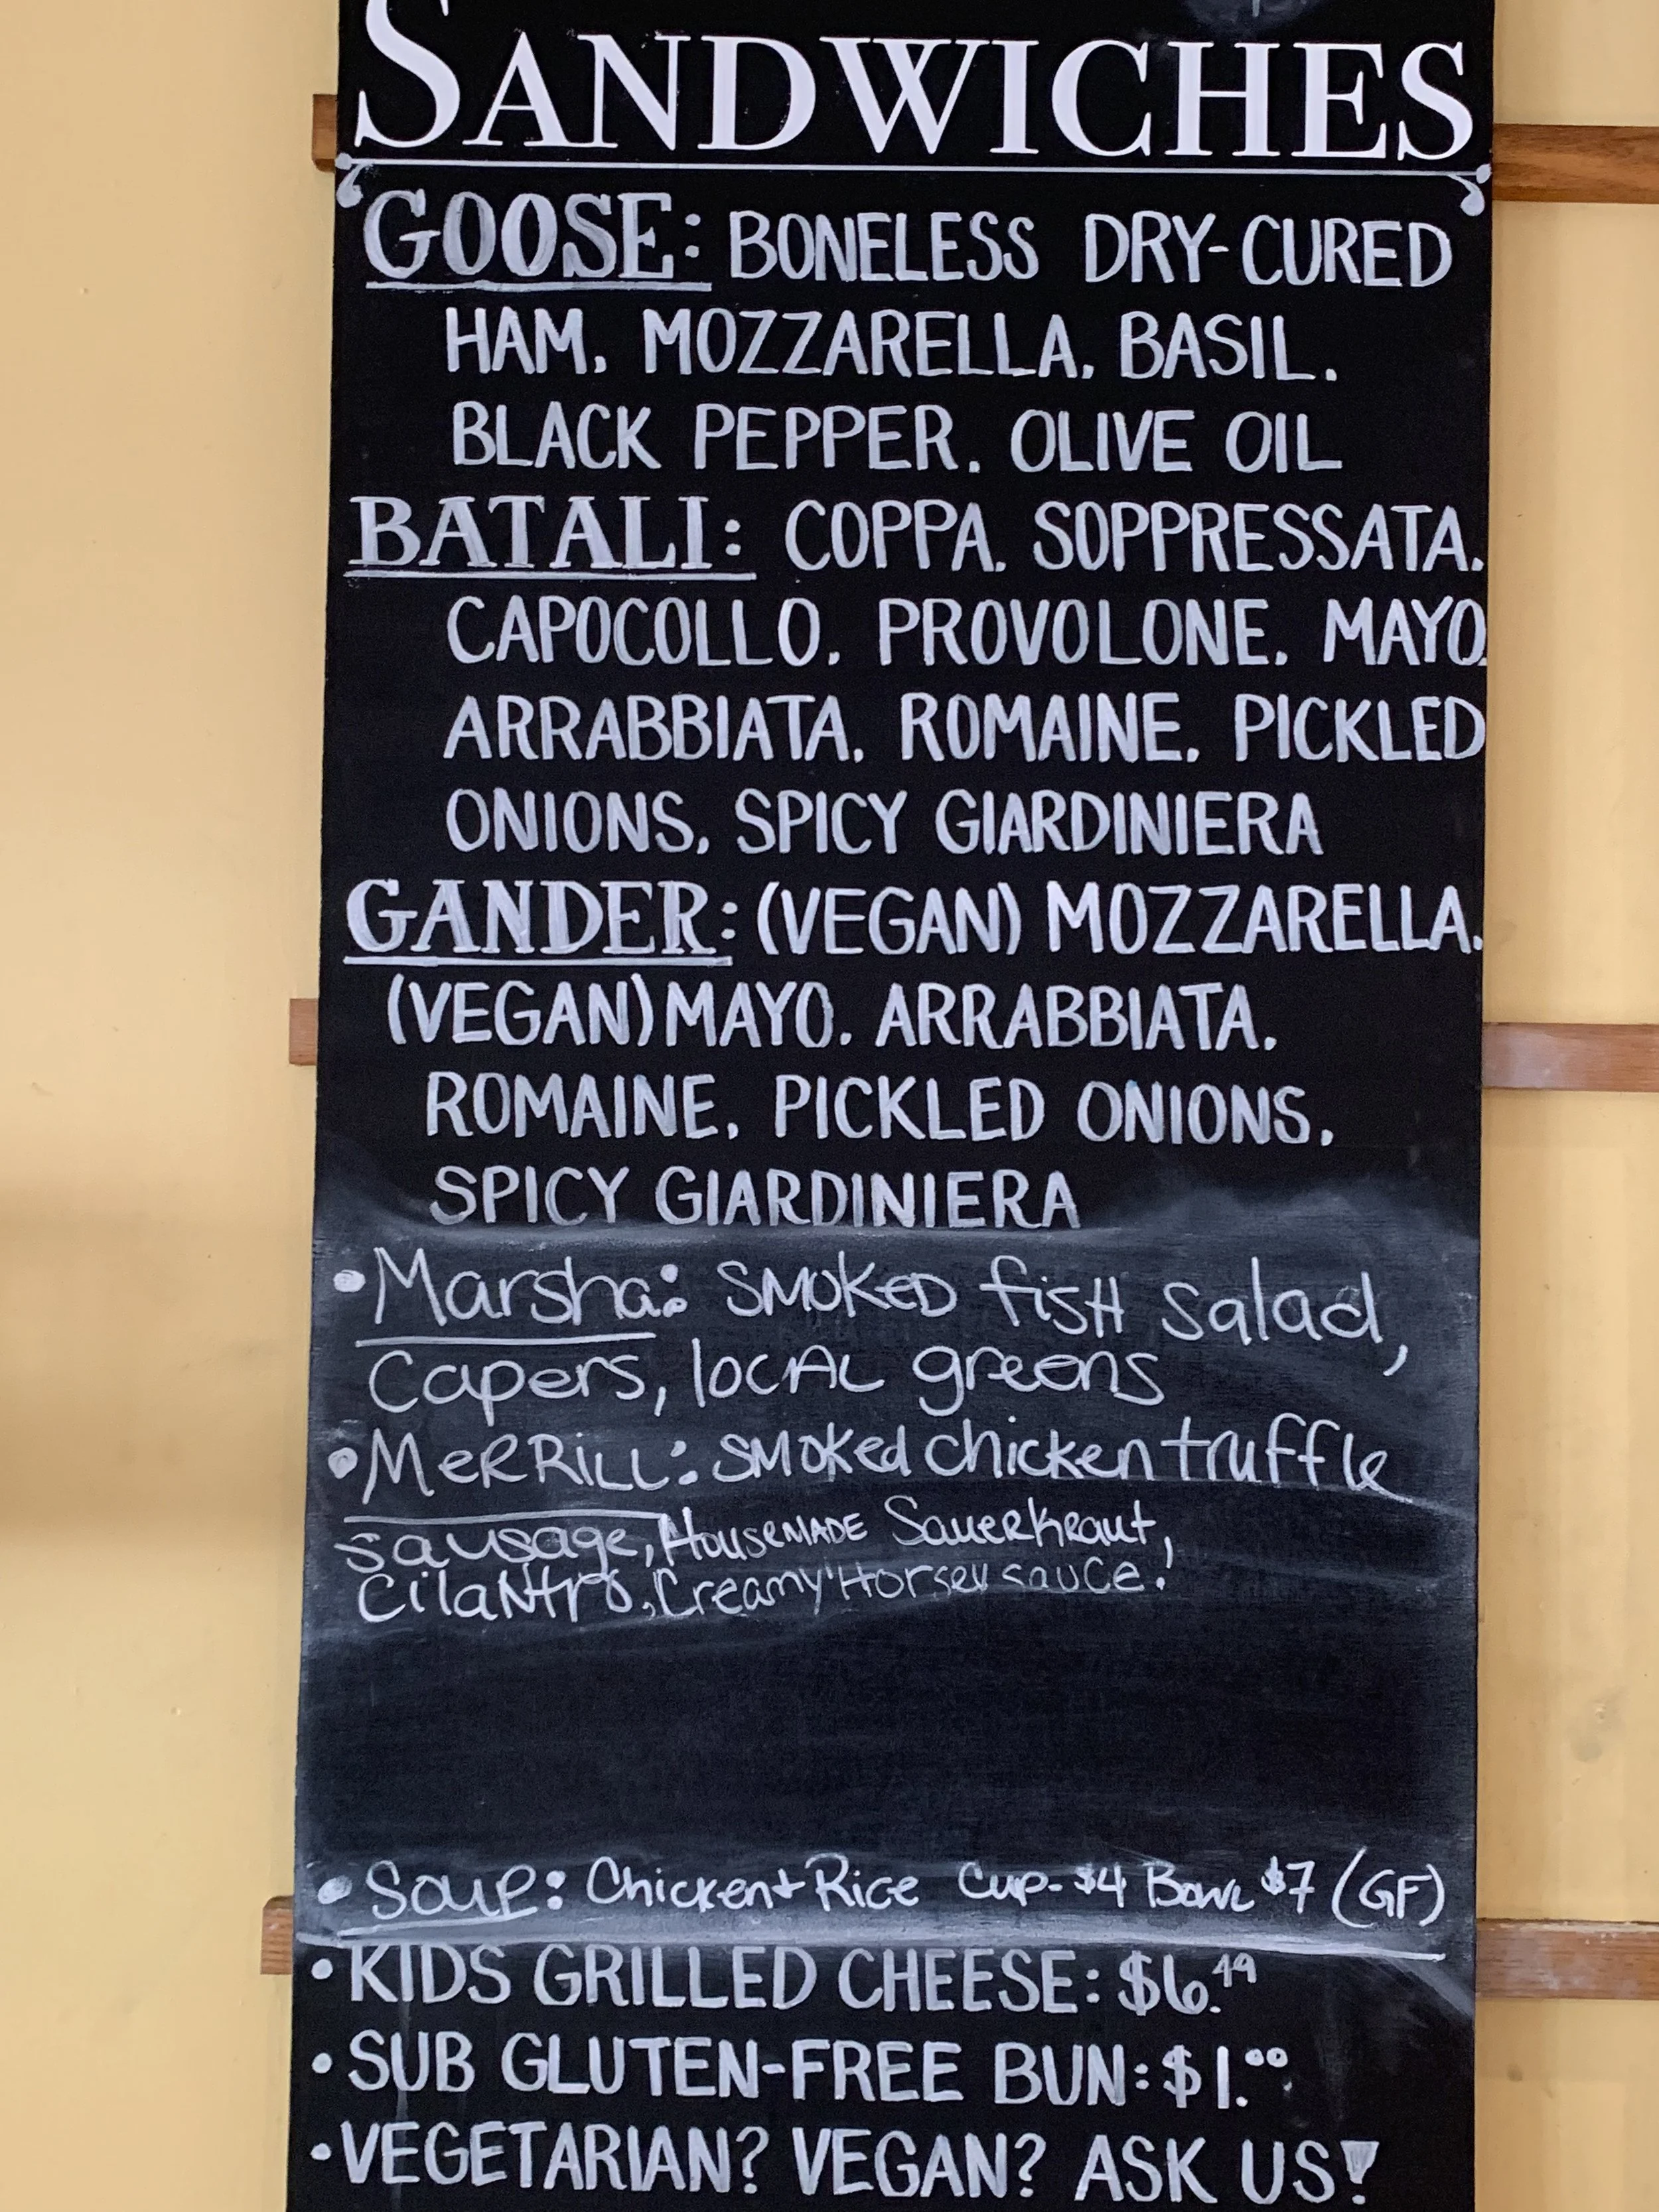 SANDWICHES
GOOSE: BONELESS DRY-CURED
HAM, MOZZARELLA, BASIL,
BLACK PEPPER, OLIVE OIL
BATALI: COPPA, SOPPRESSATA,
CAPOCOLLO, PROVOLONE, MAYO,
ARRABBIATA, ROMAINE, PICKLED
ONIONS, SPICY GIARDINIERA
GANDER: (VEGAN) MOZZARELLA,
(VEGAN) MAYO, ARRABBIATA,
ROMAINE, PICKLED ONIONS,
SPICY GIARDINIERA
• Marsha: SMOKED fisH salad,
Capers, locAL greens
• MeRRiLL: SMOKed chicken truffle
sausage, HouseMADE SauerKraut,
CilaNtro, Creamy Horsey sauce!
• Soup: Chicken + Rice Cup - $4 Bowl $7 (GF)
• KIDS GRILLED CHEESE: $6.49
• SUB GLUTEN-FREE BUN: $1.00
• VEGETARIAN? VEGAN? ASK US!